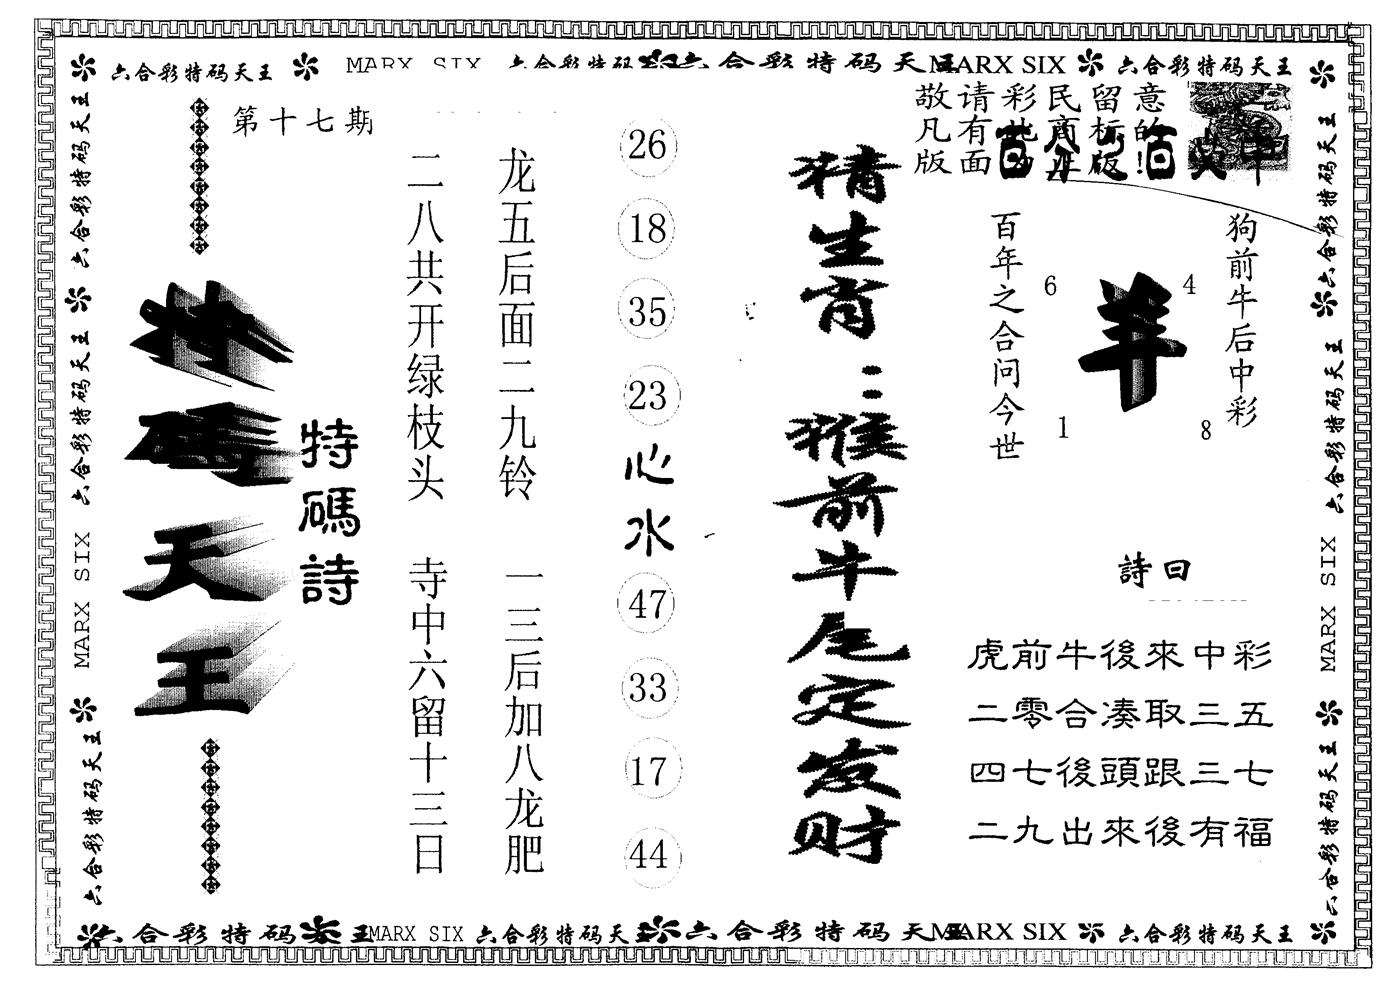 六合彩特码天王
MARX SIX
六合彩特码天王
MARX SIX
六合彩特码天王
第十七期
特碼天王
特碼詩
二八共开绿枝头
寺中六留十三日
龙五后面二九铃
一三后加八龙肥
26
18
35
23
心
水
47
33
17
44
猜生肖：猴前牛尾定发财
敬请彩民留意
凡有
版面
百年之合问今世
6
4
羊
1
8
狗前牛后中彩
詩曰
虎前牛後來中彩
二零合凑取三五
四七後頭跟三七
二九出來後有福
六合彩特码天王
六合彩特码天王
MARX SIX
六合彩特码天王
六合彩特码天王
六合彩特码天王
MARX SIX
六合彩特码天王
六合彩特码
王
MARX SIX
六合彩特码天王
六合彩特码天
MARX SIX
六合彩特码天王